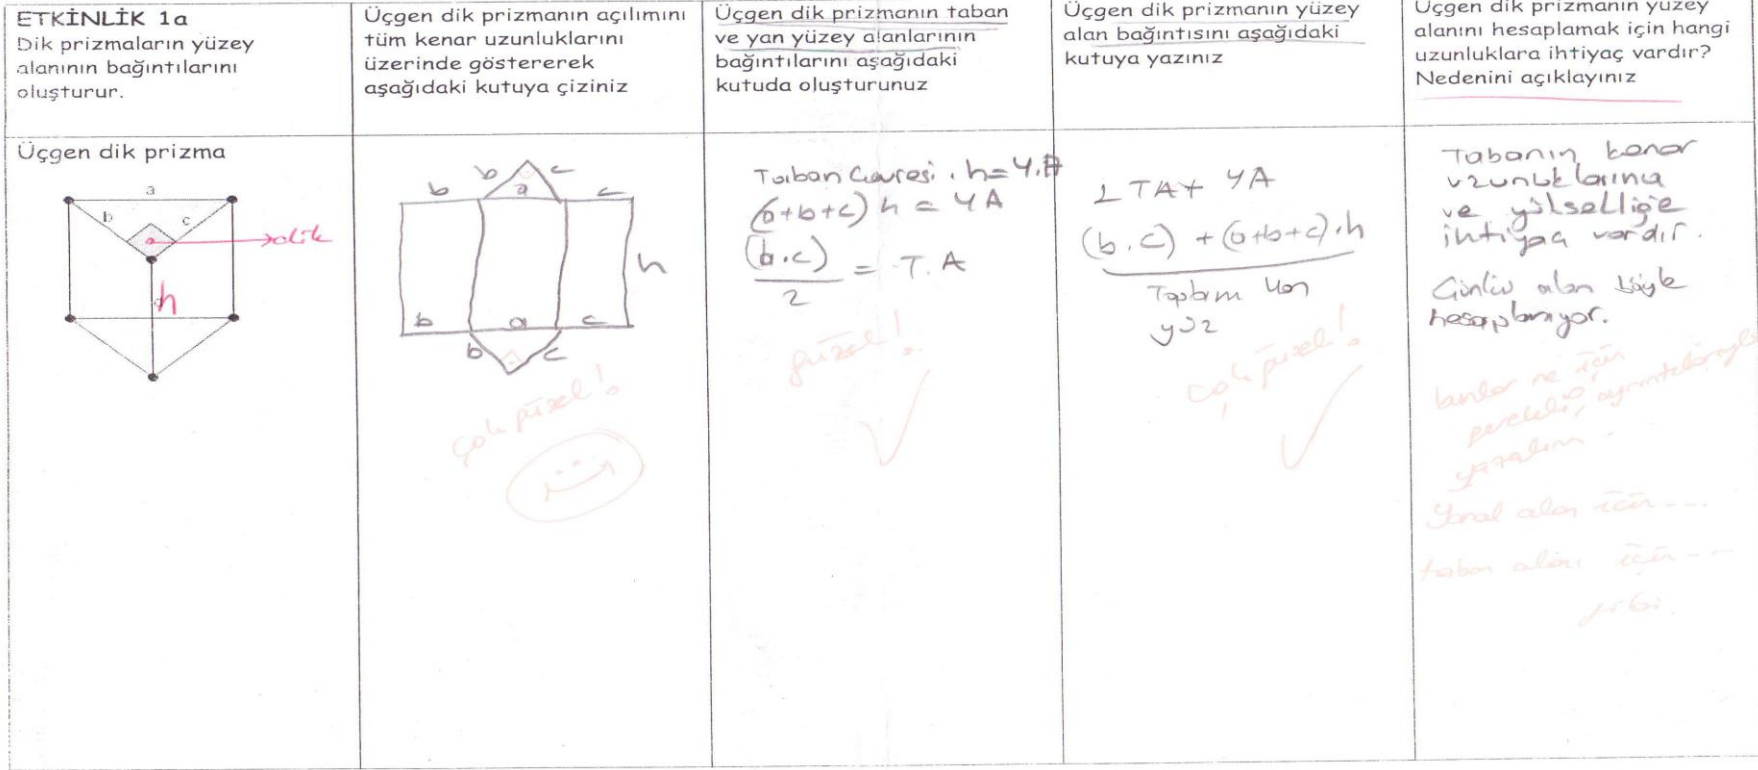 ETKİNLİK 1a
Dik prizmaların yüzey
alanının bağıntılarını
oluşturur.
Üçgen dik prizmanın açılımını
tüm kenar uzunluklarını
üzerinde göstererek
aşağıdaki kutuya çiziniz
Üçgen dik prizmanın taban
ve yan yüzey alanlarının
bağıntılarını aşağıdaki
kutuda oluşturunuz
Üçgen dik prizmanın yüzey
alan bağıntısını aşağıdaki
kutuya yazınız
Üçgen dik prizmanın yüzey
alanını hesaplamak için hangi
uzunluklara ihtiyaç vardır?
Nedenini açıklayınız
Üçgen dik prizma
a
b c
dik
h
b c
b a c
h
b a c
b c
çok güzel!
Taban Çevresi . h = Y.A
(a+b+c) h = YA
(b.c)
2
= T.A
güzel!
2TA + YA
(b.c) + (a+b+c).h
Toplam yan
yüz
çok güzel!
Tabanın kenar
uzunluklarına
ve yüksekliğe
ihtiyaç vardır.
Çünkü alan böyle
hesaplanıyor.
bunlar ne için
gerekli, ayrıntılarıyla
yazalım.
Yanal alan için ---
taban alanı için ---
gibi.